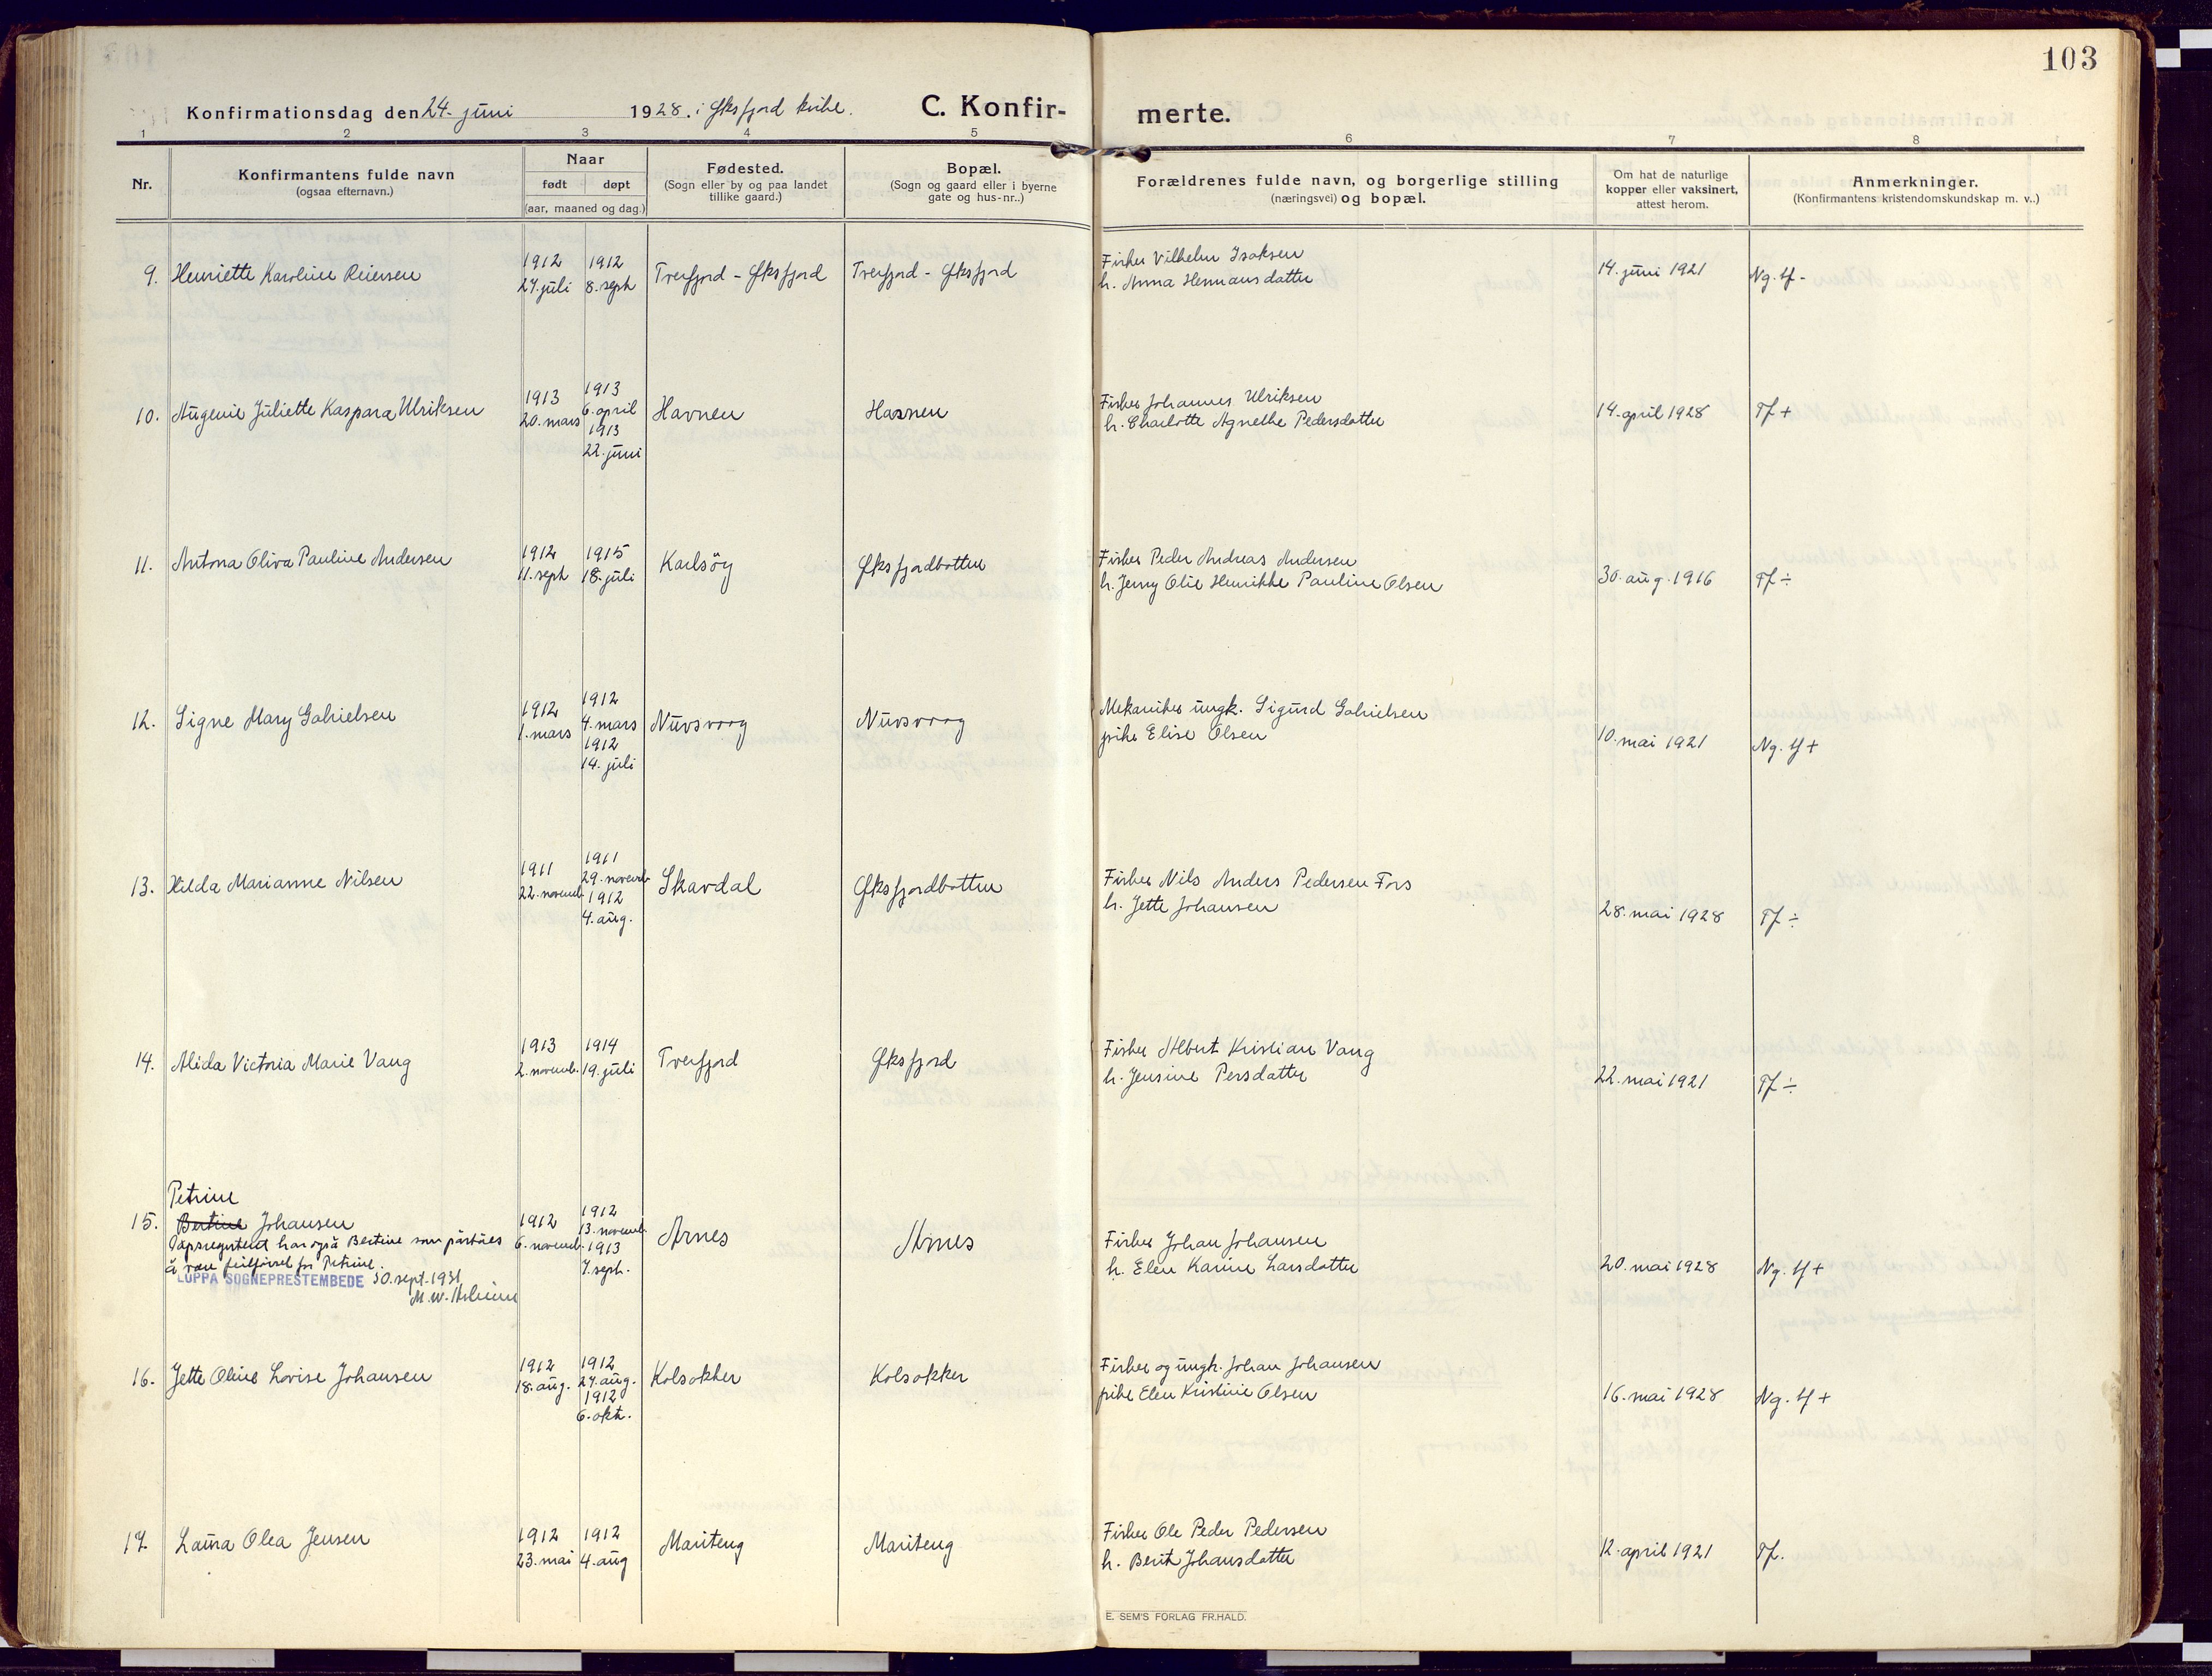 103
Konfirmationsdag den 24. juni 1928. i Øksfjord kirke. C. Konfir- merte.
1 2 3 4 5 6 7 8
Nr.
Konfirmantens fulde navn
(ogsaa efternavn.)
Naar
født døpt
(aar, maaned og dag.)
Fødested.
(Sogn eller by og paa landet
tillike gaard.)
Bopæl.
(Sogn og gaard eller i byerne
gate og hus-nr..)
Forældrenes fulde navn, og borgerlige stilling
(næringsvei) og bopæl.
Om hat de naturlige
kopper eller vaksinert,
attest herom.
Anmerkninger.
(Konfirmantens kristendomskundskap m. v..)
9. Henriette Karoline Reiersen
1912 27. juli
1912 8. sept
Tverfjord - Øksfjord
Tverfjord - Øksfjord
Fisker Vilhelm Isaksen
h. Anna Hermansdatter
14. juni 1921
Ng. tf -
10. Augenie Juliette Kaspara Ulriksen
1913 20. mars
1913 6. april
1913 22. juni
Havnen
Havnen
Fisker Johannes Ulriksen
h. Charlotte Agnethe Pedersdatter
14. april 1928
Tf +
11. Antona Oliva Pauline Andersen
1912 11. sept
1915 18. juli
Karlsöy
Øksfjordbotten
Fisker Peder Andreas Andersen
h. Jenny Olie Henrikke Pauline Olsen
30. aug. 1916
Tf ÷
12. Signe Mary Gabrielsen
1912 1. mars
1912 4. mars
1912 14. juli
Nuvsvaag
Nuvsvaag
Mekaniker ungk. Sigurd Gabrielsen
pike Elise Olsen
10. mai 1921
Ng. tf +
13. Hilda Marianne Nilsen
1911 22. novemb.
1911 29. novemb
1912 4. aug.
Skavdal
Øksfjordbotten
Fisker Nils Anders Pedersen Fors
h. Jette Johansen
28. mai 1928
Tf ÷
14. Alida Victoria Marie Vang
1913 2. novemb.
1914 19. juli
Tverfjord
Øksfjord
Fisker Albert Kristian Vang
h. Jensine Persdatter
22. mai 1921
Tf ÷
Petrine
15. Bertine Johansen
Dåpsregisteret har også Bertine som påståes
å være feilførsel for Petrine.
LOPPA SOGNEPRESTEMBEDE 30. sept. 1931
M. W.
1912 6. novemb.
1912 13. novemb.
1913 7. sept.
Arnes
Arnes
Fisker Johan Johansen
h. Elen Karine Larsdatter
20. mai 1928
Ng. tf +
16. Jette Oline Lovise Johansen
1912 18. aug.
1912 27. aug.
1912 6. okt.
Kolsokker
Kolsokker
Fisker og ungk. Johan Johansen
pike Elen Kristine Olsen
16. mai 1928
Ng. tf +
17. Laura Olea Jensen
1912 23. mai
1912 4. aug
Mariteng
Mariteng
Fisker Ole Peder Pedersen
h. Berit Johansdatter
12. april 1921
Tf.
E. SEM'S FORLAG FR.HALD.